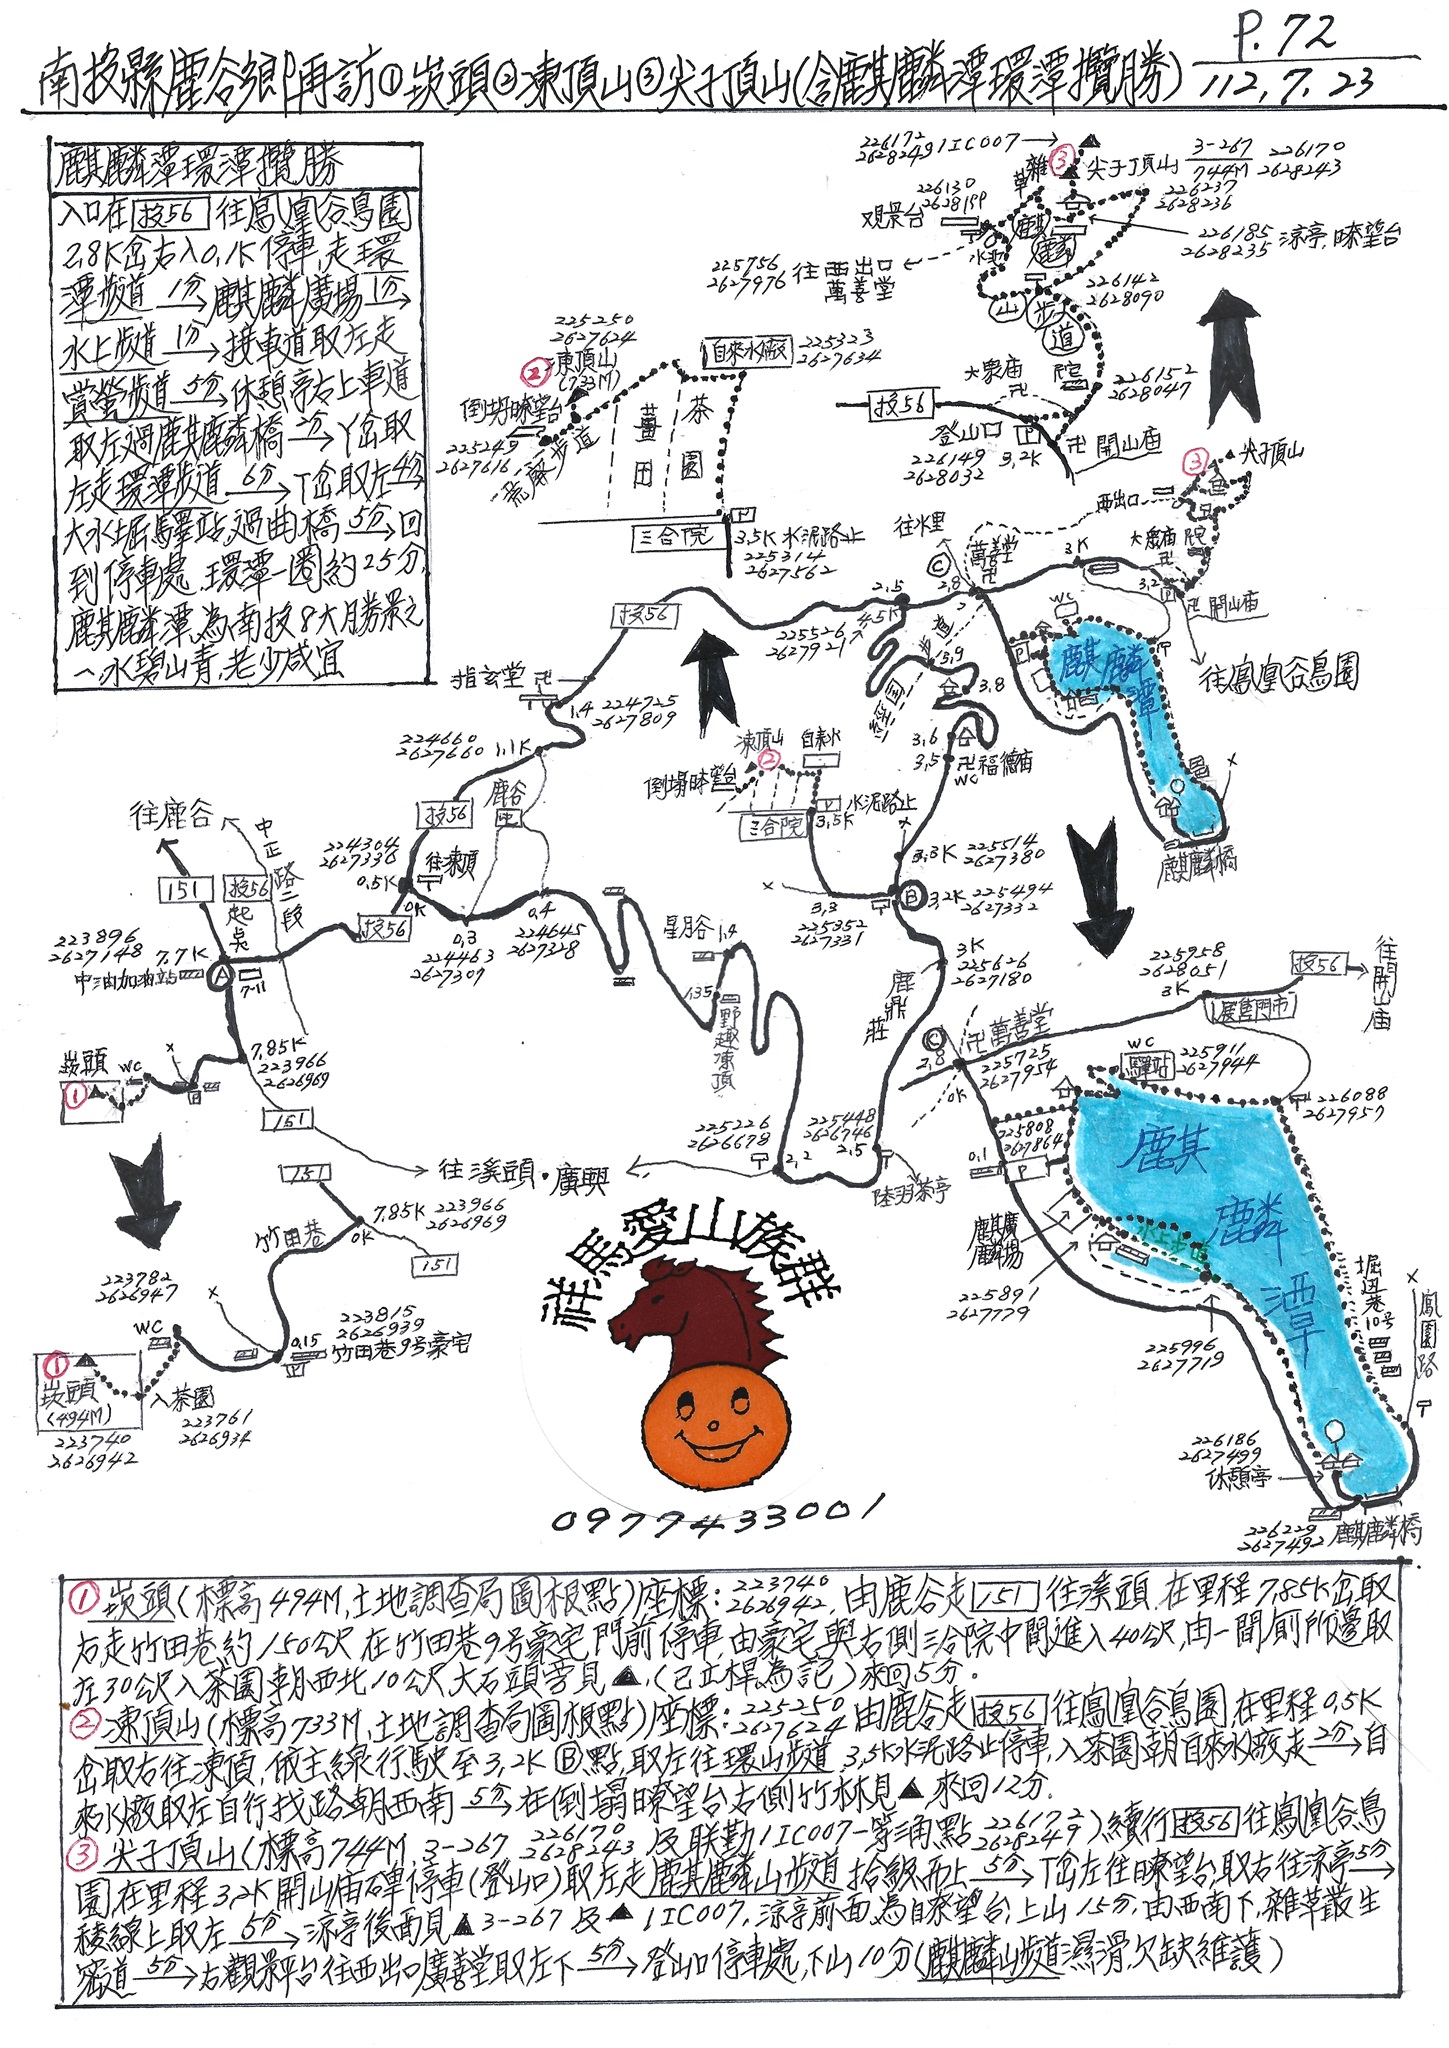 P.72
南投縣鹿谷鄉再訪①崁頭②凍頂山③尖子頂山(含麒麟潭環潭攬勝)
112.7.23
麒麟潭環潭攬勝
入口在投56往鳳凰谷鳥園
2.8K岔右入0.1K停車,走環
潭步道1分→麒麟廣場1分→
水上步道1分→接車道取左走
賞螢步道5分→休憩亭右上車道
取左過麒麟橋2分→Y岔取
左走環潭步道6分→T岔取左4分→
大水堀驛站,過曲橋5分→回
到停車處.環潭一圈約25分,
麒麟潭為南投8大勝景之
一,水碧山青,老少咸宜
226172
2628249 1IC007
雜草
③
尖子頂山
3-267
744M
226170
2628243
226130
2628199
觀景台
226237
2628236
226185
2628235
涼亭.瞭望台
水池
麒麟
山步道
225756
2627976
往西出口
萬善堂
226142
2628090
225250
2627624
②
凍頂山
(733M)
自來水廠
225323
2627634
倒塌瞭望台
225249
2627616
荒廢步道
薑田
茶園
三合院
P
3.5K 水泥路止
225314
2627562
大眾庙
卍
院
226152
2628047
投56
登山口
P
3.2K
226149
2628032
卍開山庙
③
尖子頂山
西出口
大眾庙
卍
院
3.2
P
卍開山庙
往水里
萬善堂
卍
Ⓒ
2.8
3K
WC
往鳳凰谷鳥園
麒麟潭
P
麒麟橋
投56
2.5
4.5K
225526
2627921
步道
3.9
3.8
3.6
3.5
卍福德庙
WC
指玄堂
卍
1.4
224725
2627809
224660
2627660
1.1K
鹿谷
投56
往凍頂
224304
2627336
0.5K
0K
投56
0.3
224463
2627307
0.4
224645
2627328
凍頂山
②
自來水
倒塌瞭望台
三合院
P
水泥路止
3.5K
3.3K
225514
2627380
Ⓑ
3.2K
225494
2627332
3.3
225352
2627331
3K
225626
2627180
鹿鼎莊
往鹿谷
中正路二段
151
投56
起點
223896
2627148
7.7K
中油加油站
Ⓐ
7-11
崁頭
①
WC
P
7.85K
223966
2626969
151
往溪頭.廣興
星月谷
1.4
1.35
野趣凍頂
225226
2626678
2.2
225448
2626746
2.5
陸羽茶亭
151
竹田巷
7.85K
0K
223966
2626969
151
223782
2626947
WC
①
崁頭
(494M)
223740
2626942
入茶園
223761
2626934
0.15
P
223815
2626939
竹田巷9号豪宅
祥馬愛山族群
0977433001
225958
2628051
3K
投56
往開山庙
展售門市
Ⓒ
2.8
0K
卍萬善堂
225725
2627954
WC
驛站
225911
2627944
226088
2627957
225808
2627864
0.1
P
麒麟廣場
225891
2627779
水上步道
225996
2627719
麒麟潭
堀边巷10号
鳳園路
226186
2627499
休憩亭
226229
2627492
麒麟橋
①崁頭(標高494M,土地調查局圖根點)座標:223740 2626942,由鹿谷走151往溪頭,在里程7.85K岔取
右走竹田巷,約150公尺,在竹田巷9号豪宅門前停車,由豪宅與右側三合院中間進入40公尺,由一間廁所邊取
左30公尺入茶園,朝西北10公尺大石頭旁見▲,(已立桿為記)來回5分.
②凍頂山(標高733M,土地調查局圖根點)座標:225250 2627624由鹿谷走投56往鳳凰谷鳥園,在里程0.5K
岔取右往凍頂,依主線行駛至3.2KⒷ點,取左往環山步道,3.5K水泥路止停車,入茶園朝自來水廠走2分→自
來水廠取左自行找路朝西南5分→在倒塌瞭望台右側竹林見▲來回12分.
③尖子頂山(標高744M,3-267 226170 2628243及联勤1IC007一等涌點226172 2628249)續行投56往鳳凰谷鳥
園,在里程3.2K開山庙碑停車(登山口)取左走麒麟山步道拾級而上5分→T岔左往瞭望台,取右往涼亭5分→
稜線上取左5分→涼亭後面見▲3-267及▲1IC007,涼亭前面為自瞭望台,上山15分,由西南下,雜草叢生
窄道5分→右觀景平台往西出口廣善堂取左下5分→登山口停車處,下山10分(麒麟山步道濕滑,欠缺維護)